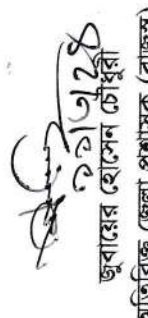 ২১/৩/২৪
জুবায়ের হোসেন চৌধুরী
অতিরিক্ত জেলা প্রশাসক (রাজস্ব)